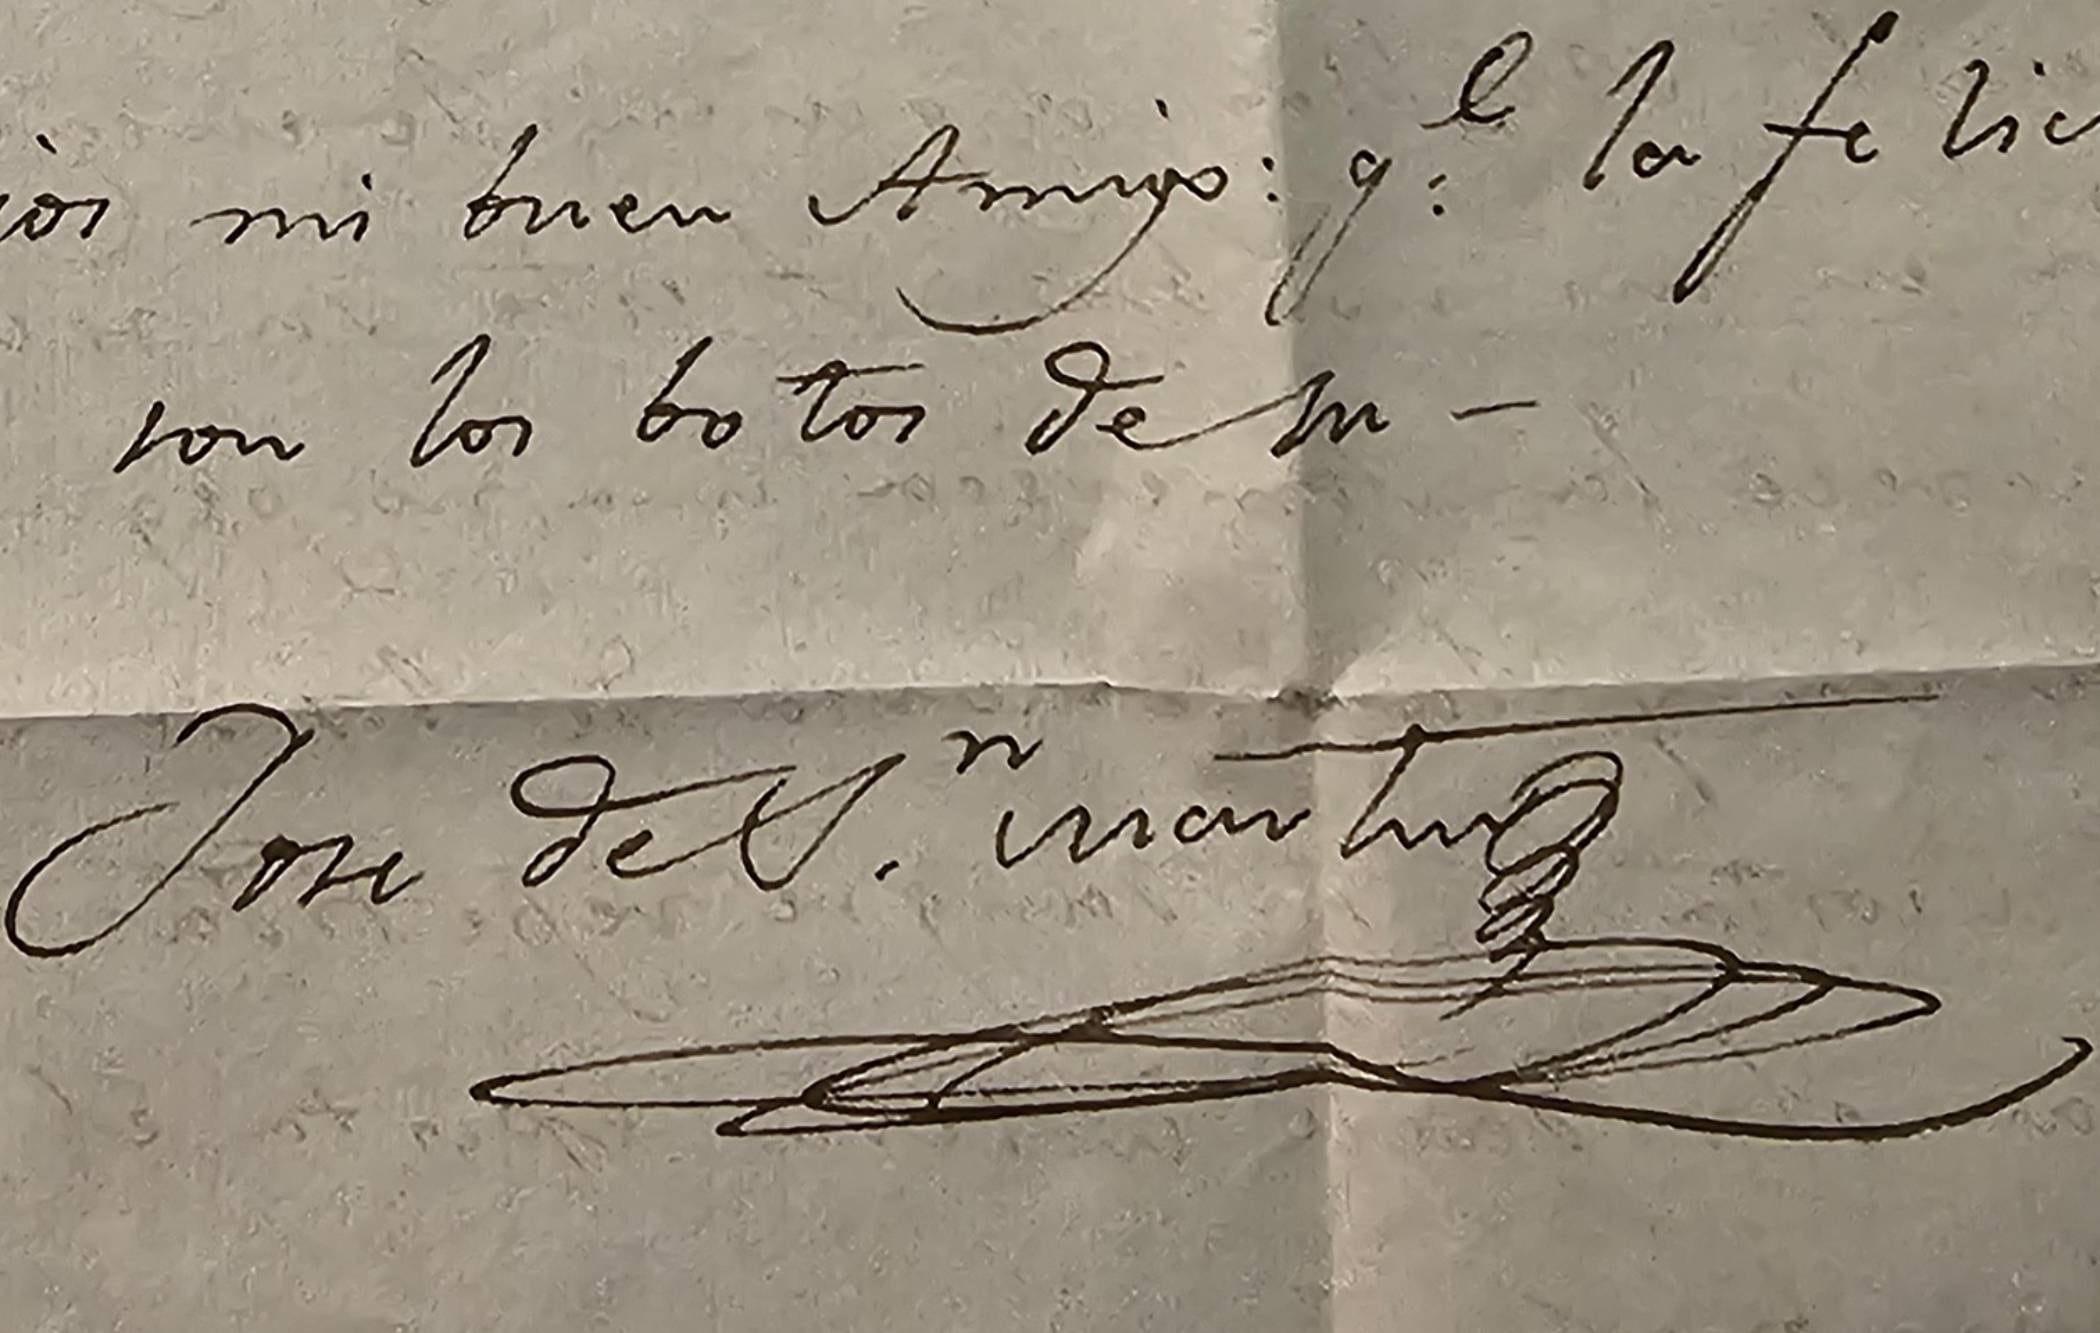 ios mi buen Amigo: q.e la felic
son los botos de su —
Jose de S.n martin